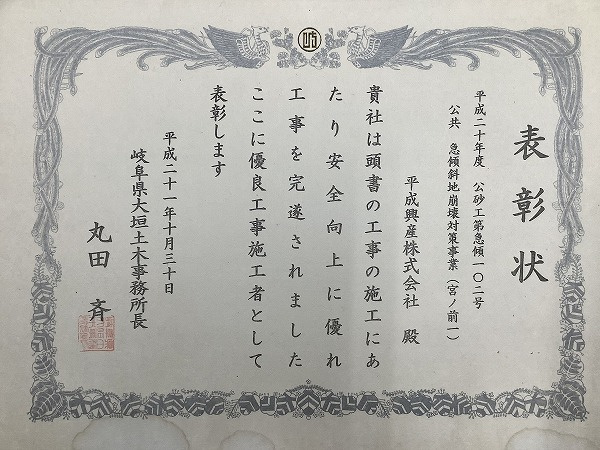 表彰状
平成二十年度 公砂工第急傾一〇二号
公共 急傾斜地崩壊対策事業（宮ノ前一）
平成興産株式会社 殿
貴社は頭書の工事の施工にあ
たり安全向上に優れ
工事を完遂されました
ここに優良工事施工者として
表彰します
平成二十一年十月三十日
岐阜県大垣土木事務所長
丸田 斉